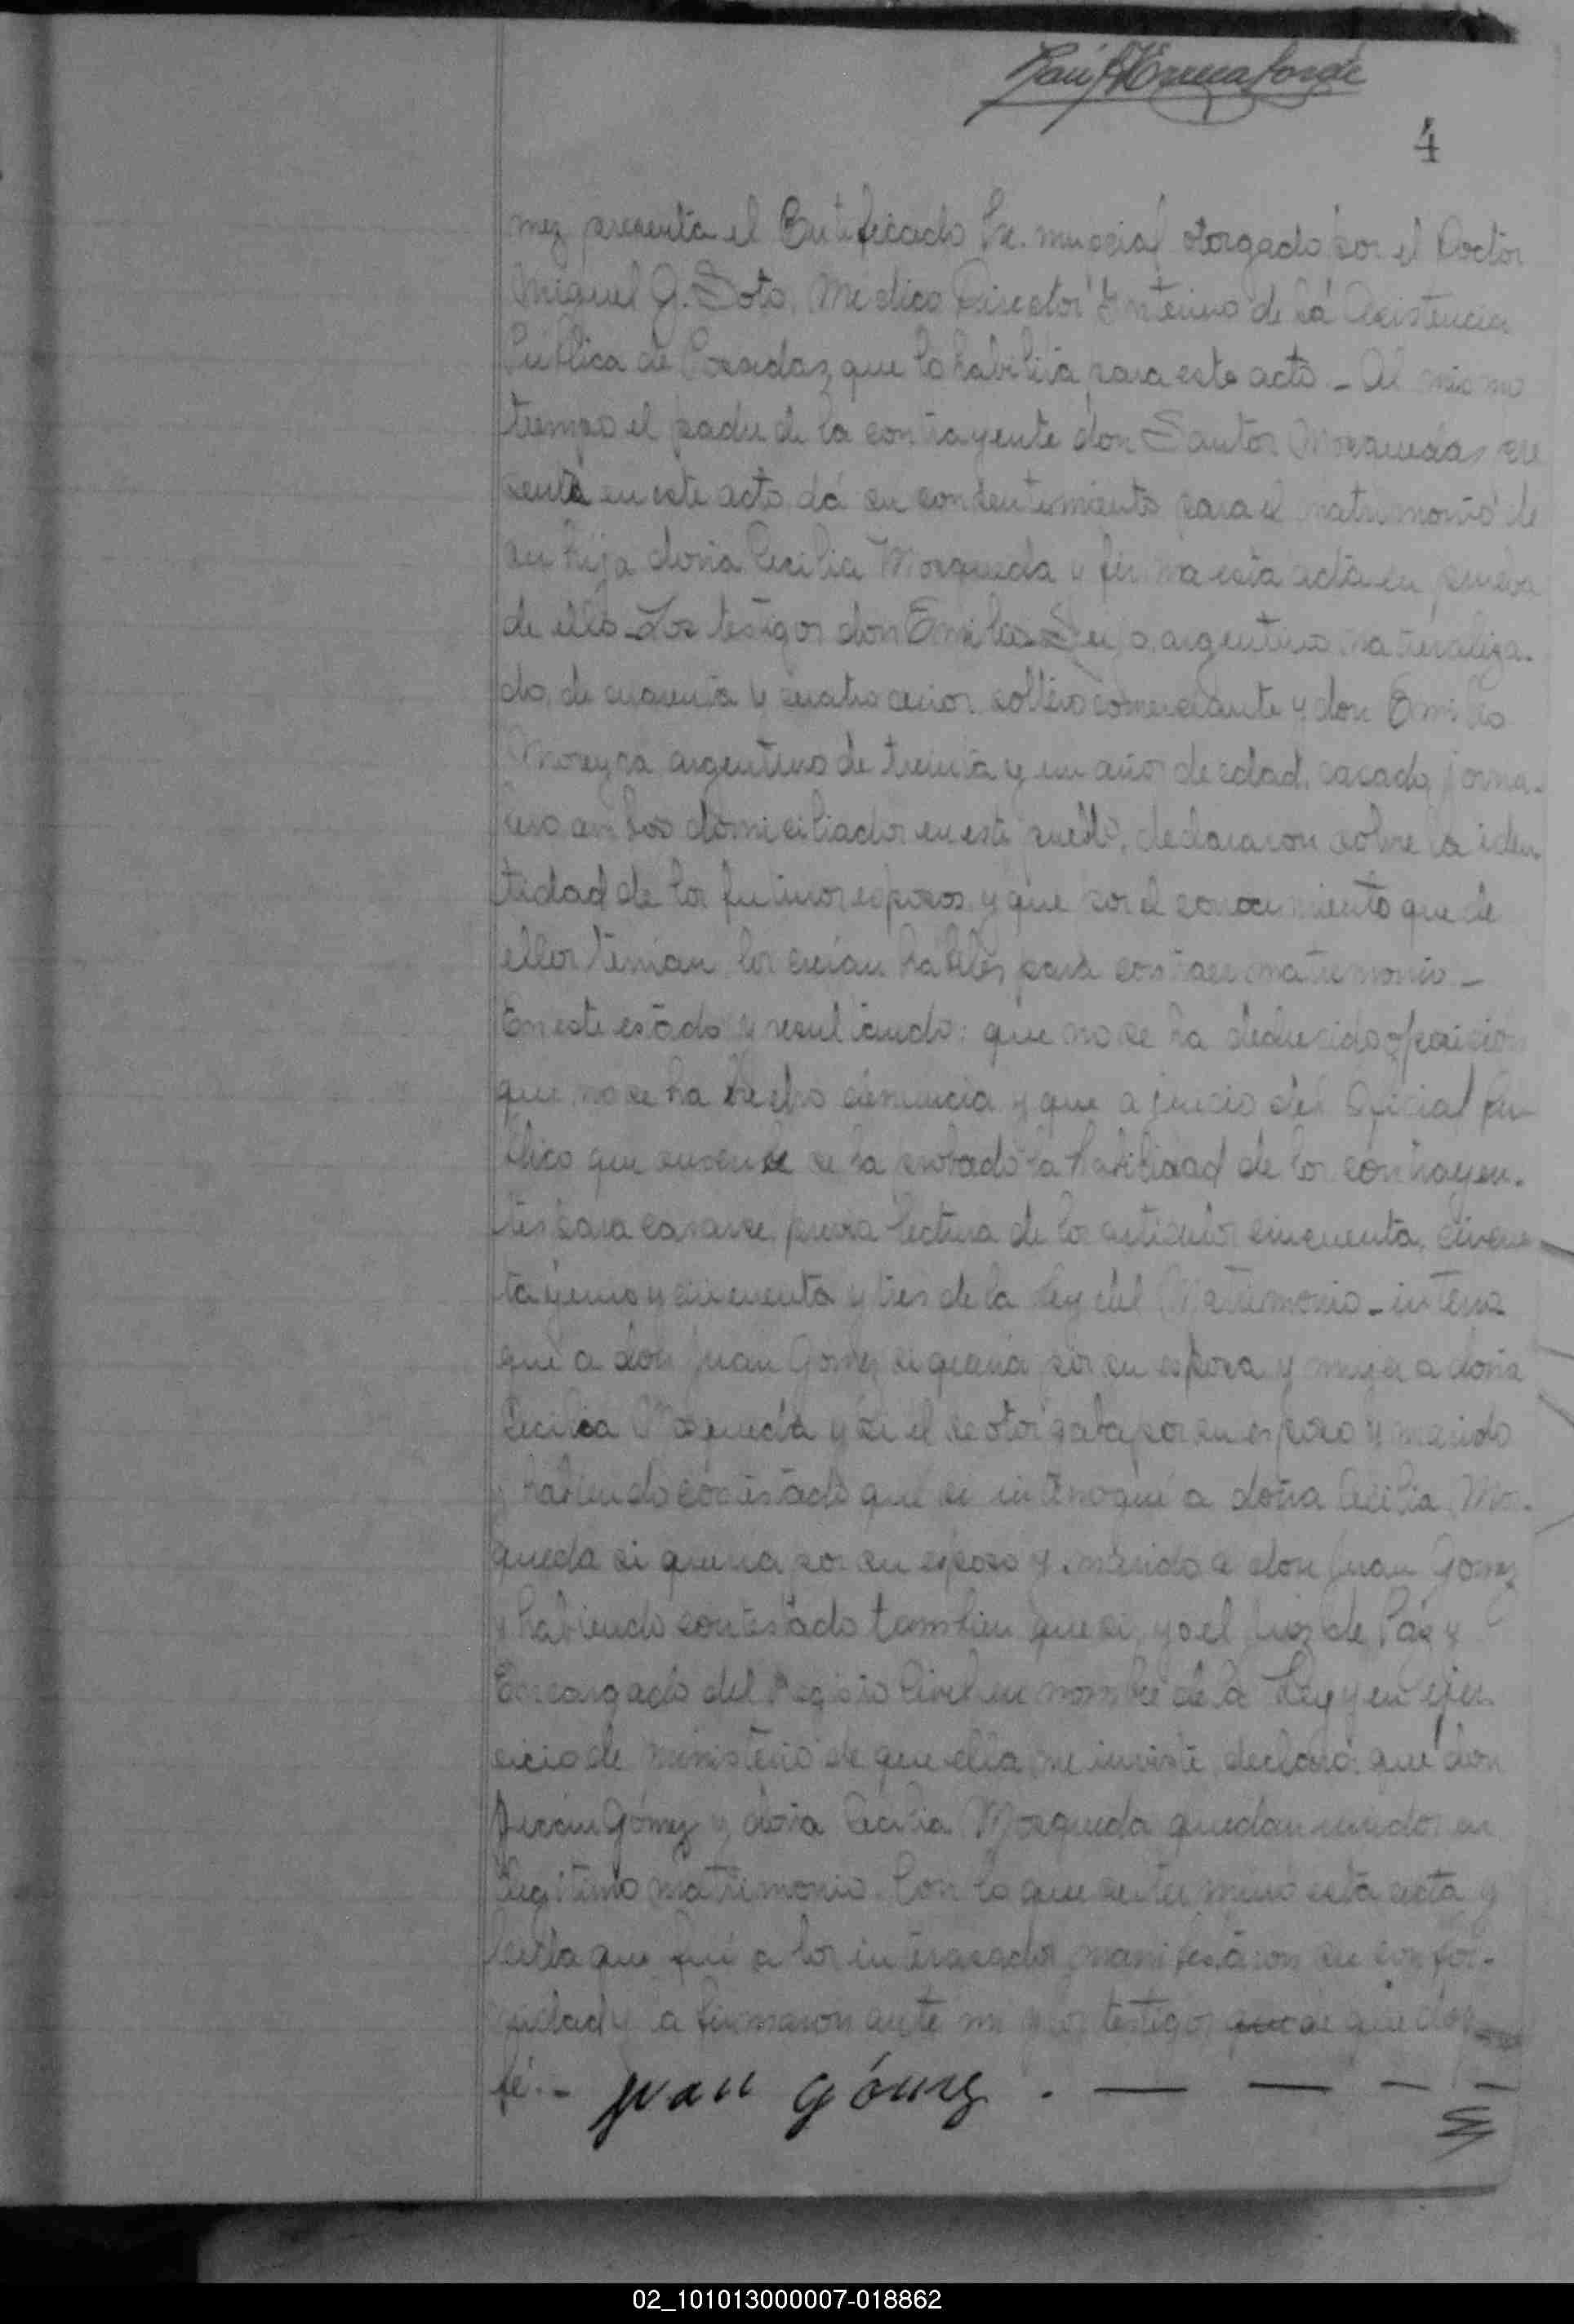 4
mez presenta el Certificado Pre. nupcial otorgado por el Doctor
Miguel G. Soto, Medico Director Interino de la Asistencia
Pública de Posadas, que lo habilita para este acto_ Al mismo
tiempo el padre de la contrayente don Santos Mosqueda, pre
sente en este acto, dá su consentimiento para el matrimonio de
su hija doña Cecilia Mosqueda y firma esta acta en prueba
de ello_Los testigos don Emilio argentino naturaliza-
do, de cuarenta y cuatro años, soltero comerciante y don Emilio
Moreyra argentino de treinta y un años de edad, casado, jorna-
lero ambos domiciliados en este pueblo, declararon sobre la iden-
tidad de los futuros esposos, y que por el conocimiento que de
ellos tenian los creian habiles para contraer matrimonio_
En este estado y resultando: que no se ha deducido oposición
que no se ha hecho denuncia y que a juicio del Oficial Pú-
blico que suscribe se ha probado la habilidad de los contrayen-
tes para casarse, previa lectura de los articulos cincuenta, cincuen
ta y uno y cincuenta y tres de la Ley del Matrimonio_interro
gué a don Juan Gomez si queria por su esposa y mujer a doña
Cecilia Mosqueda y si el se otorgaba por su esposo y marido
y habiendo contestado que si interrogué a doña Cecilia Mos-
queda si queria por su esposo y marido a don Juan Gomez
y habiendo contestado tambien que si, yo el Juez de Paz y
Encargado del Registro Civil en nombre de la Ley y en ejer-
cicio de ministerio de que ella me inviste, declaro: que don
Juan Gómez y doña Cecilia Mosqueda quedan unidos en
legitimo matrimonio. Con lo que se terminó esta acta y
leida que fué a los interesados manifestaron su confor-
midad y la firmaron ante mi y los testigos que de que doy
fé._ juan gómez . — — — —
02_101013000007-018862